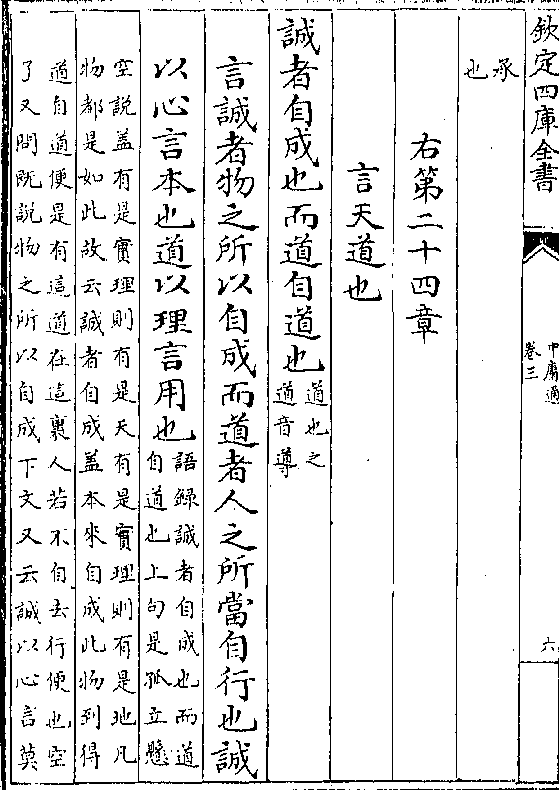 欽定四庫全書
中庸通
卷三
六
承
也
右第二十四章
言天道也
誠者自成也而道自道也道也之
道音導
言誠者物之所以自成而道者人之所當自行也誠
以心言本也道以理言用也語録誠者自成也而道
自道也上句是孤立懸
空說盖有是實理則有是天有是實理則有是地凡
物都是如此故云誠者自成盖本來自成此物到得
道自道便是有這道在這裏人若不自去行便也空
了又問既說物之所以自成下文又云誠以心言莫